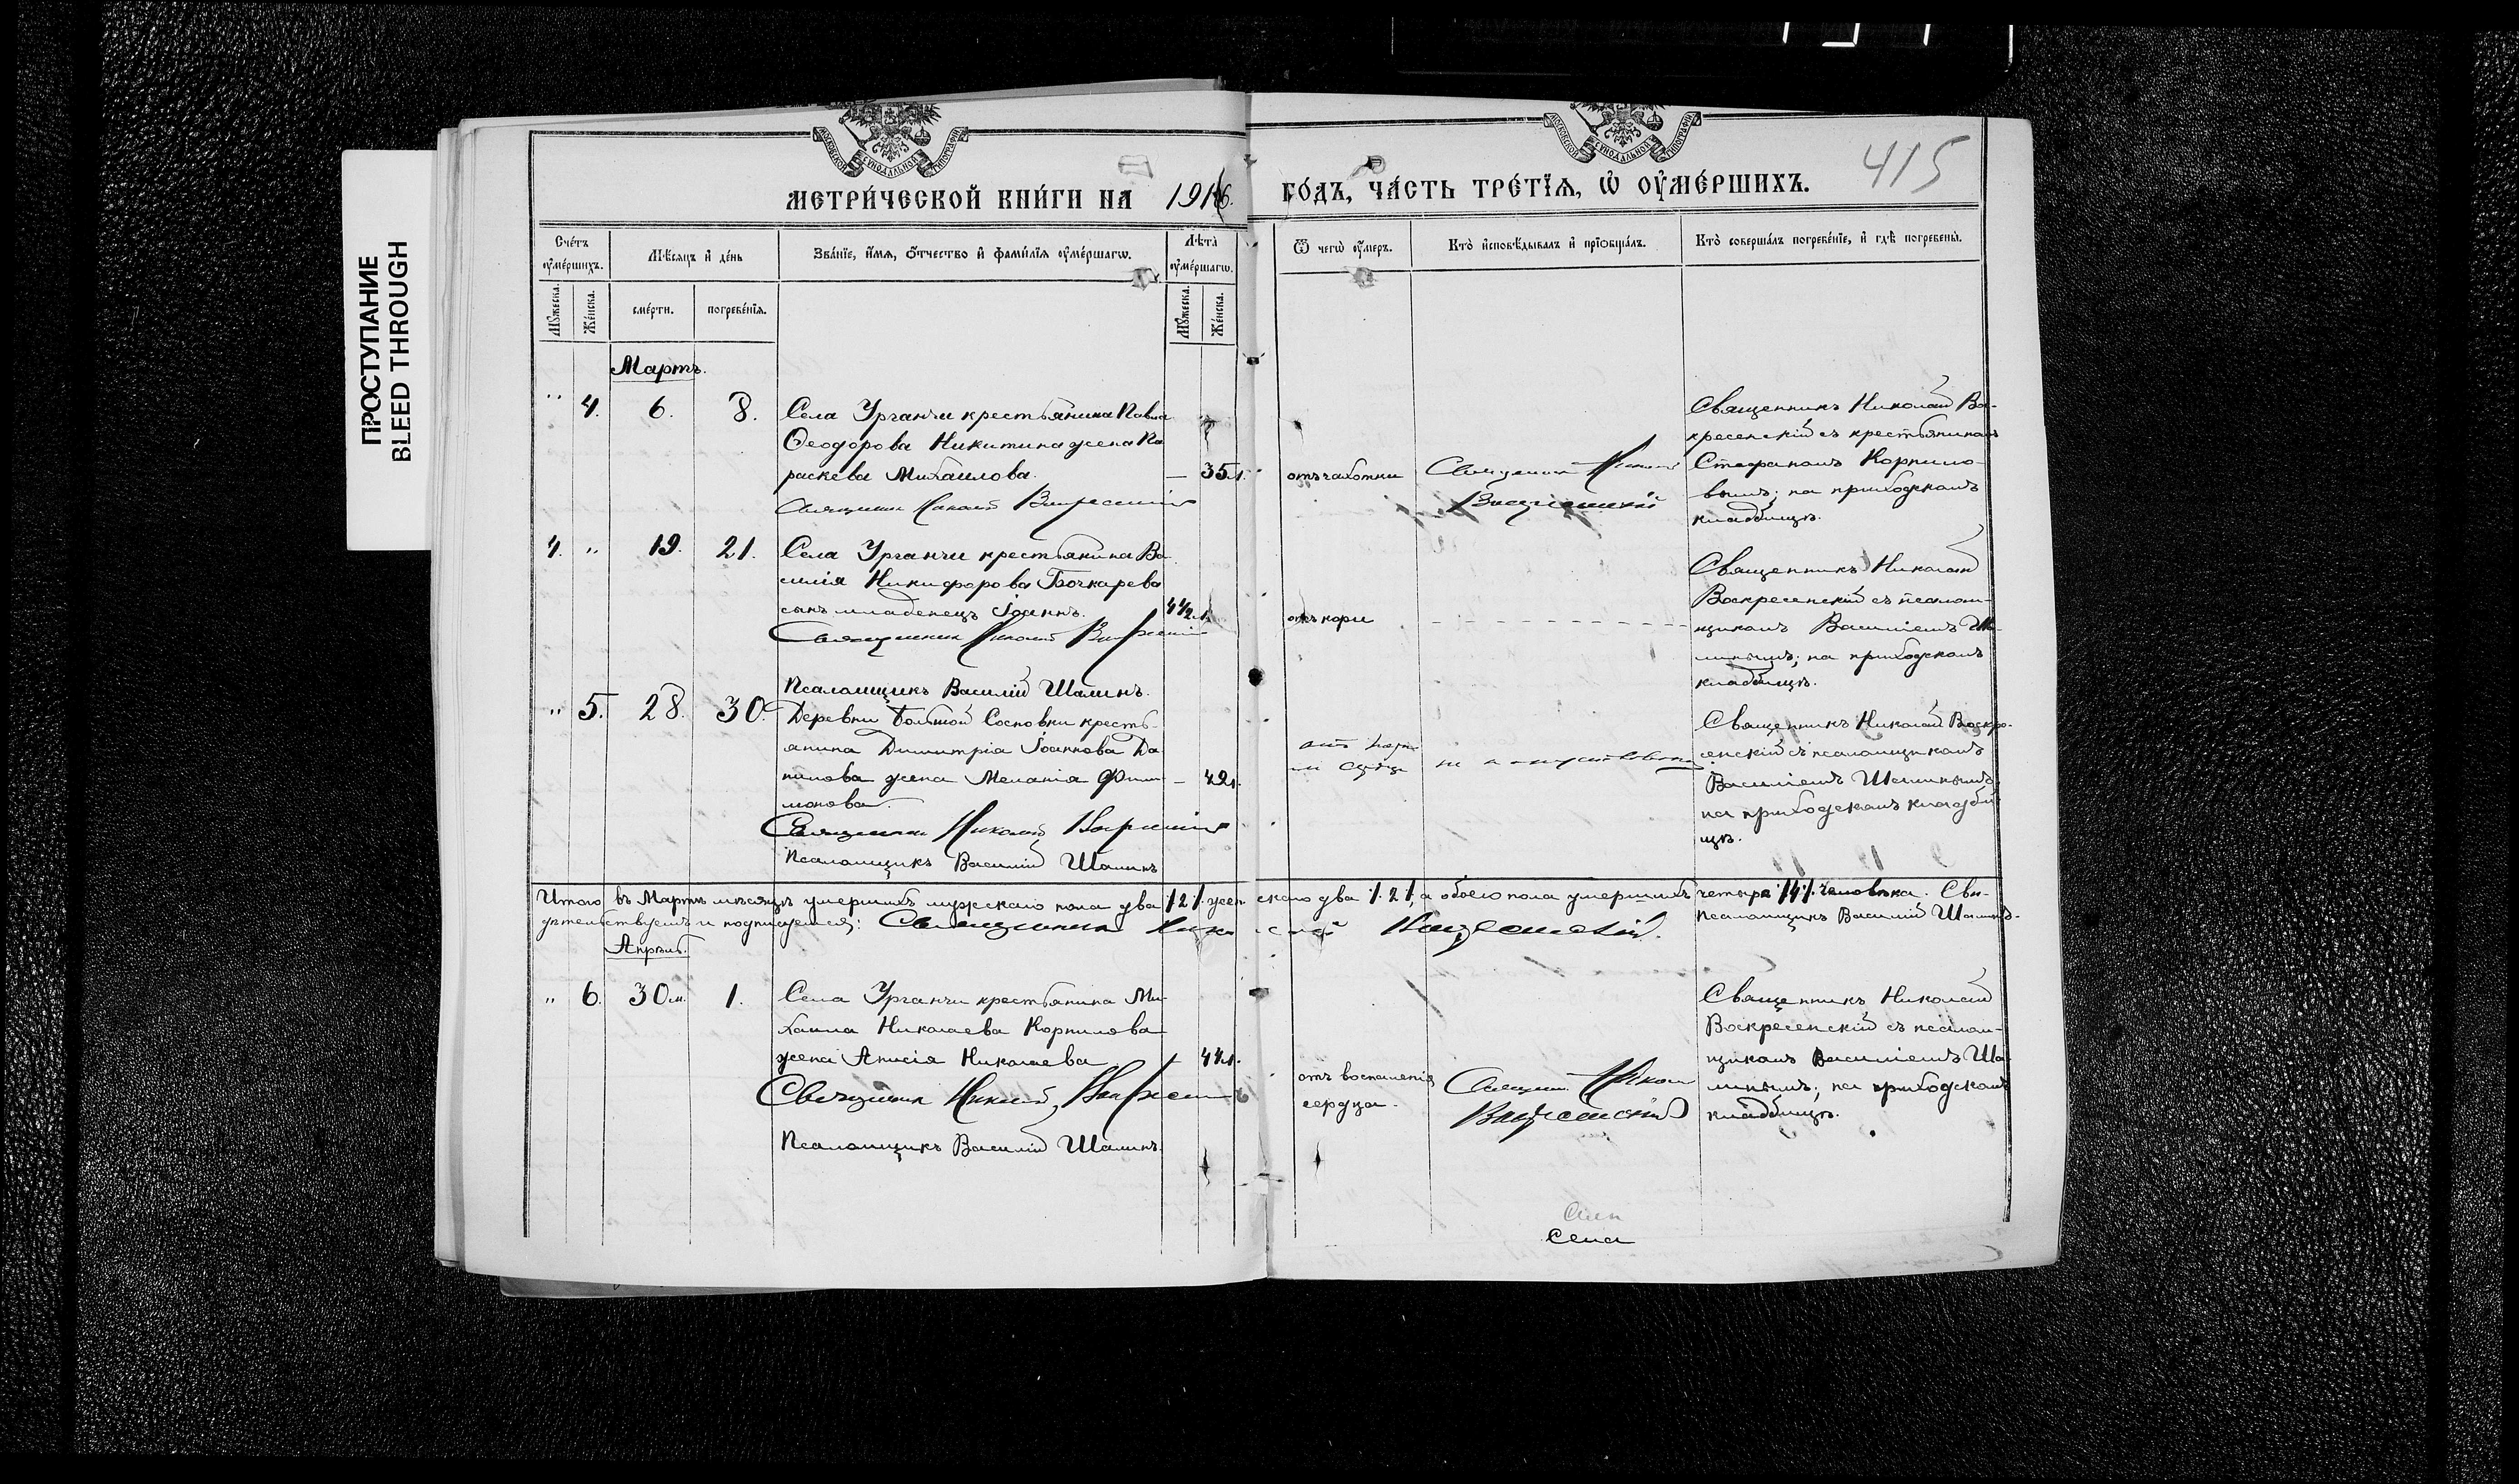 ПРОСТУПАНИЕ
BLEED THROUGH
МЕТРИ́ЧЕСКОЙ КНИ́ГИ НА 1916.
ГО́ДЪ, ЧА́СТЬ ТРЕ́ТЇѦ, Ѡ҆ ОУ҆МЕ́РШИХЪ.
415
Сче́тъ оу҆ме́ршихъ.
Мѣ́сѧцъ и҆ де́нь
Зва́нїе, и҆́мѧ, ѻ҆́тчество и҆ фами́лїѧ оу҆ме́ршагѡ.
Лѣ́та оу҆ме́ршагѡ.
Ѿ чегѡ̀ оу҆́меръ.
Кто̀ и҆сповѣ́дывалъ и҆ прїѡбща́лъ.
Кто̀ соверша́лъ погребе́нїе, и҆ гдѣ̀ погребены̀.
Мꙋ́жеска.
Же́нска.
сме́рти.
погребе́нїѧ.
Мꙋ́жеска.
Же́нска.
Мартъ.
" 4. 6. 8.
Села Урганчи крестьянина Павла
Ѳеодорова Никитина жена Па
раскева Михаилова. — 35 л.
Священникъ Николай Воскресенскій
отъ чахотки
Священникъ Николай
Воскресенскій
Священникъ Николай Вос-
кресенскій съ крестьяниномъ
Стефаномъ Корнило-
вымъ; на приходскомъ
кладбищѣ.
4. " 19. 21.
Села Урганчи крестьянина Ва
силія Никифорова Бочкарева
сынъ младенецъ Іоаннъ. 4½ л.
Священникъ Николай Воскресенскій
Псаломщикъ Василій Шалинъ.
отъ кори
Священникъ Николай
Воскресенскій съ псалом-
щикомъ Василіемъ Ша-
линымъ; на приходскомъ
кладбищѣ.
" 5. 28. 30.
Деревни Большой Сосновки кресть-
янина Димитрія Іоаннова Да
нилова жена Меланія Фили-
монова. — 42 л.
Священникъ Николай Воскресенскій
Псаломщикъ Василій Шалинъ
Священникъ Николай Воскре-
сенскій съ псаломщикомъ
Василіемъ Шалинымъ,
на приходскомъ кладби
щѣ.
Итого въ Мартѣ мѣсяцѣ умершихъ мужскаго пола два /2/ женскаго два /2/, а обоего пола умершихъ четыре /4/ человѣка. Сви-
дѣтельствуемъ и подписуемся: Священникъ Николай Воскресенскій. Псаломщикъ Василій Шалинъ.
Апрѣль.
" 6. 30 м. 1.
Села Урганчи крестьянина Ми-
хаила Николаева Корнилова
жена Анисія Николаева
Священникъ Николай Воскресенскій
Псаломщикъ Василій Шалинъ.
отъ воспаленія
сердца.
Священникъ Николай
Воскресенскій
Священникъ Николай
Воскресенскій съ псалом-
щикомъ Василіемъ Ша-
линымъ; на приходскомъ
кладбищѣ.
Села